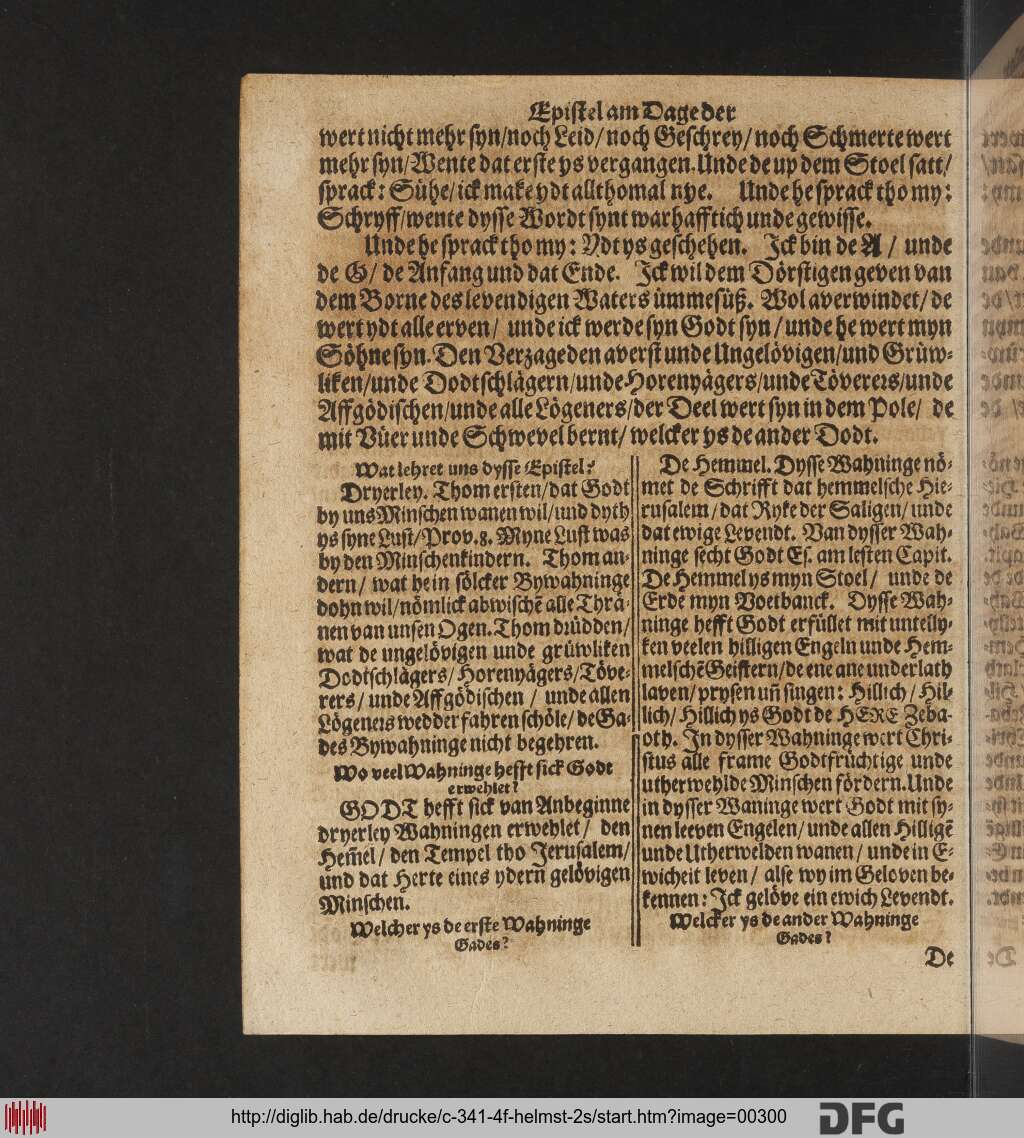 Epistel am Dage der
wert nicht mehr syn/noch Leid/ noch Geschrey/ noch Schmerte wert
mehr syn/Wente dat erste ys vergangen. Unde de up dem Stoel satt/
sprack: Sühe/ ick make ydt allthomal nye. Unde he sprack tho my:
Schryff/wente dysse Wordt synt warhafftich unde gewisse.
Unde he sprack tho my: Ydt ys geschehen. Ick bin de A/ unde
de O/ de Anfang und dat Ende. Ick wil dem Dörstigen geven van
dem Borne des levendigen Waters ümmesüß. Wol averwindet/ de
wert ydt alle erven/ unde ick werde syn Godt syn/ unde he wert myn
Söhne syn. Den Verzageden averst unde Ungelövigen/und Grüw⸗
liken/unde Dodtschlägern/unde Horenyägers/unde Töverers/unde
Affgödischen/unde alle Lögeners/der Deel wert syn in dem Pole/ de
mit Vüer unde Schwevel bernt/ welcker ys de ander Dodt.
Wat lehret uns dysse Epistel?
Dryerley. Thom ersten/dat Godt
by uns Minschen wanen wil/und dyth
ys syne Lust/Prov. 8. Myne Lust was
by den Minschenkindern. Thom an⸗
dern/ wat he in sölcker Bywahninge
dohn wil/nömlick abwischē alle Thrä⸗
nen van unsen Ogen. Thom drüdden/
wat de ungelövigen unde grüwliken
Dodtschlägers/ Horenyägers/Töve⸗
rers/ unde Affgödischen/ unde allen
Lögeners wedderfahren schöle/ de Ga⸗
des Bywahninge nicht begehren.
Wo veel Wahninge hefft sick Godt
erwehlet?
GODT hefft sick van Anbeginne
dryerley Wahningen erwehlet/ den
Hem̄el/ den Tempel tho Jerusalem/
und dat Herte eines ydern gelövigen
Minschen.
Welcher ys de erste Wahninge
Gades?
De Hemmel. Dysse Wahninge nö⸗
met de Schrifft dat hemmelsche Hie⸗
rusalem/ dat Ryke der Saligen/ unde
dat ewige Levendt. Van dysser Wah⸗
ninge secht Godt Es. am lesten Capit.
De Hemmel ys myn Stoel/ unde de
Erde myn Voetbanck. Dysse Wah⸗
ninge hefft Godt erfüllet mit untelly⸗
ken veelen hilligen Engeln unde Hem⸗
melschē Geistern/de ene ane underlath
laven/ prysen uñ singen: Hillich/ Hil⸗
lich/ Hillich ys Godt de HERE Zeba⸗
oth. In dysser Wahninge wert Chri⸗
stus alle frame Godtfrüchtige unde
utherwehlde Minschen fördern. Unde
in dysser Waninge wert Godt mit sy⸗
nen leeven Engelen/ unde allen Hilligē
unde Utherwelden wanen/ unde in E⸗
wicheit leven/ alse wy im Geloven be⸗
kennen: Ick gelöve ein ewich Levendt.
Welcker ys de ander Wahninge
Gades?
De
http://diglib.hab.de/drucke/c-341-4f-helmst-2s/start.htm?image=00300
DFG